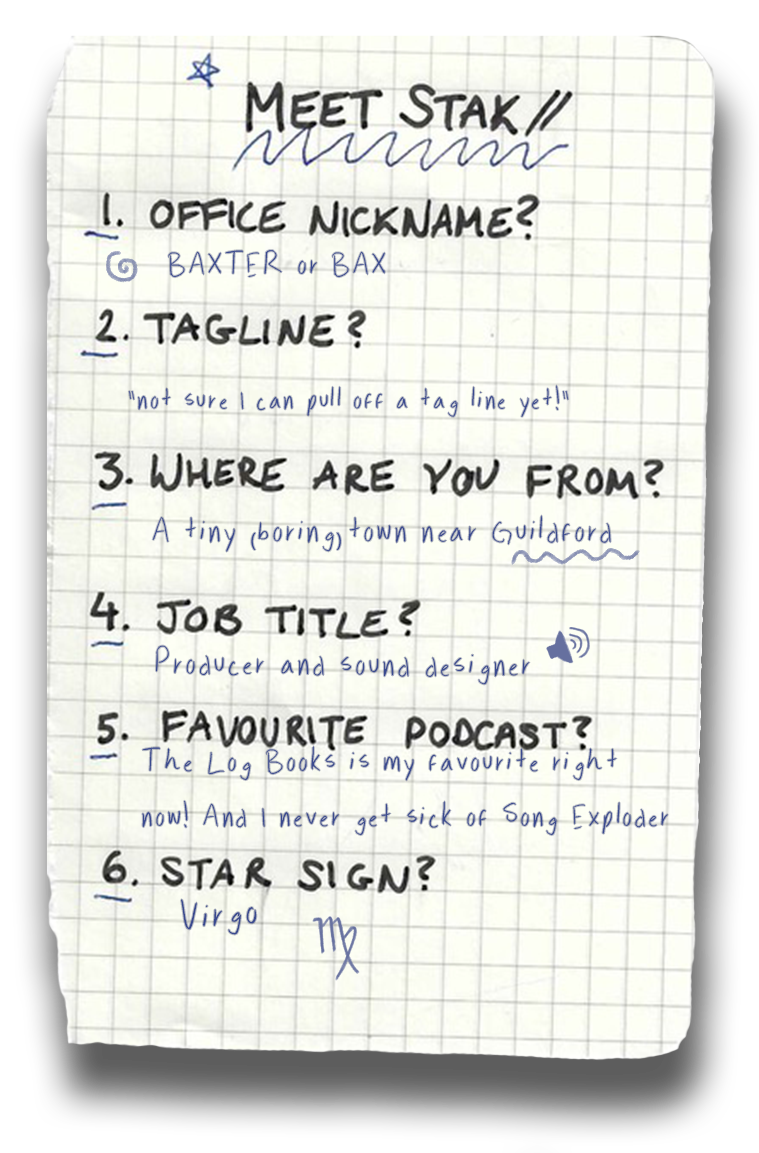 MEET STAK//
1. OFFICE NICKNAME?
BAXTER or BAX
2. TAGLINE?
"not sure I can pull off a tag line yet!"
3. WHERE ARE YOU FROM?
A tiny (boring) town near Guildford
4. JOB TITLE?
Producer and sound designer
5. FAVOURITE PODCAST?
The Log Books is my favourite right
now! And I never get sick of Song Exploder
6. STAR SIGN?
Virgo